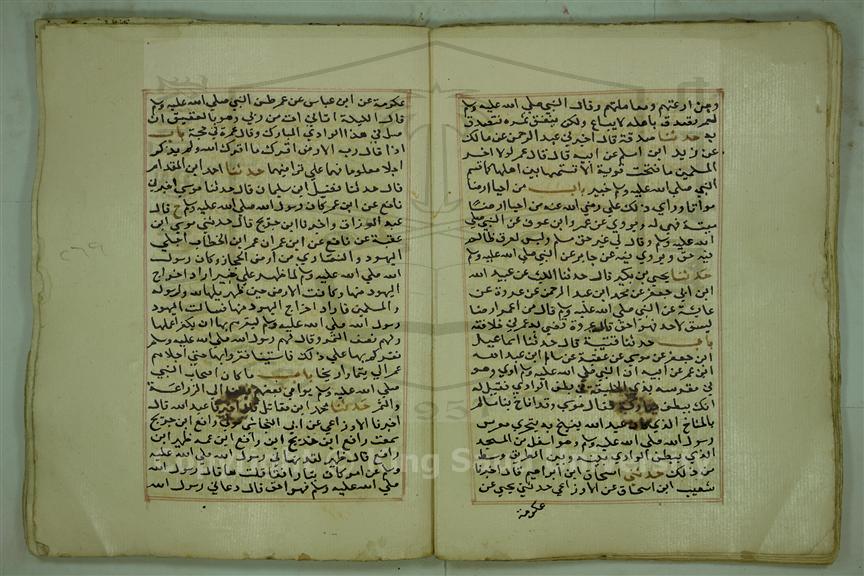 ومن ارعتهم ومعاملتهم وقال النبي صلى الله عليه وسلم
لعمر تصدق باصله لا يباع ولكن ينفق ثمره فتصدق
به حدثنا صدقة قال اخبرنا عبد الرحمن عن مالك
عن زيد ابن اسلم عن ابيه قال قال عمر لولا اخر
المسلمين ما فتحت قرية الا قسمتها بين اهلها كما قسم
النبي صلى الله عليه وسلم خيبر باب من احيا ارضا
مواتا وراى ذلك علي رضي الله عنه من احيا ارضا
ميتة فهي له ويروى عن عمرو ابن عوف عن النبي صلى
الله عليه وسلم وقال في غير حق مسلم وليس لعرق ظالم
فيه حق ويروى فيه عن جابر عن النبي صلى الله عليه وسلم
حدثنا يحيى بن بكير قال حدثنا الليث عن عبيد الله
ابن ابي جعفر عن محمد ابن عبد الرحمن عن عروة عن
عايشة عن النبي صلى الله عليه وسلم قال من اعمر ارضا
ليست لاحد فهو احق قال عروة قضى به عمر في خلافته
باب حدثنا قتيبة قال حدثنا اسماعيل
ابن جعفر عن موسى عن عقبة عن سالم ابن عبد الله
ابن عمر عن ابيه ان النبي صلى الله عليه وسلم اوى وهو
في معرسه بذي الحليفة في بطن الوادي فقيل له
انك ببطحا مباركة فقال موسى وقد اناخ بنا سالم
بالمناخ الذي كان عبد الله ينيخ به يتحرى معرس
رسول الله صلى الله عليه وسلم وهو اسفل من المسجد
الذي ببطن الوادي بينه وبين الطريق وسط
من ذلك حدثني اسحاق ابن ابراهيم قال اخبرنا
شعيب ابن اسحاق عن الاوزاعي حدثني يحيى عن
عكرمة
عكرمة عن ابن عباس عن عمر عن النبي صلى الله عليه وسلم
قال الليلة اتاني ات من ربي وهو بالعقيق ان
صل في هذا الوادي المبارك وقال عمرة في حجة باب
اذا قال رب الارض اقرك ما اقرك الله ولم يذكر
اجلا معلوما فهما على تراضيهما حدثنا احمد ابن المقدام
قال حدثنا فضيل ابن سليمان قال حدثنا موسى اخبرنا
نافع عن ابن عمر كان رسول الله صلى الله عليه وسلم ح قال
عبد الرزاق واخبرنا ابن جريج قال حدثني موسى ابن
عقبة عن نافع عن ابن عمر ان عمر ابن الخطاب اجلى
اليهود والنصارى من ارض الحجاز وكان رسول
الله صلى الله عليه وسلم لما ظهر على خيبر اراد اخراج
اليهود منها وكانت الارض حين ظهر عليها لله ولرسوله
والمسلمين فاراد اخراج اليهود منها فسالت اليهود
رسول الله صلى الله عليه وسلم ليقرهم بها ان يكفوا عملها
ولهم نصف الثمر وقال لهم رسول الله صلى الله عليه وسلم
نقركم بها على ذلك ما شينا فقروا بها حتى اجلاهم
عمر الى تيما واريحا باب ما كان اصحاب النبي
صلى الله عليه وسلم يواسي بعضهم بعضا في الزراعة
والثمر حدثنا محمد ابن مقاتل قال اخبرنا عبد الله قال
اخبرنا الاوزاعي عن ابي النجاشي مولى رافع ابن خديج
سمعت رافع ابن خديج ابن رافع عن عمه ظهير ابن
رافع قال ظهير لقد نهانا رسول الله صلى الله عليه
وسلم عن امر كان بنا رافقا قلت ما قال رسول الله
صلى الله عليه وسلم فهو حق قال دعاني رسول الله